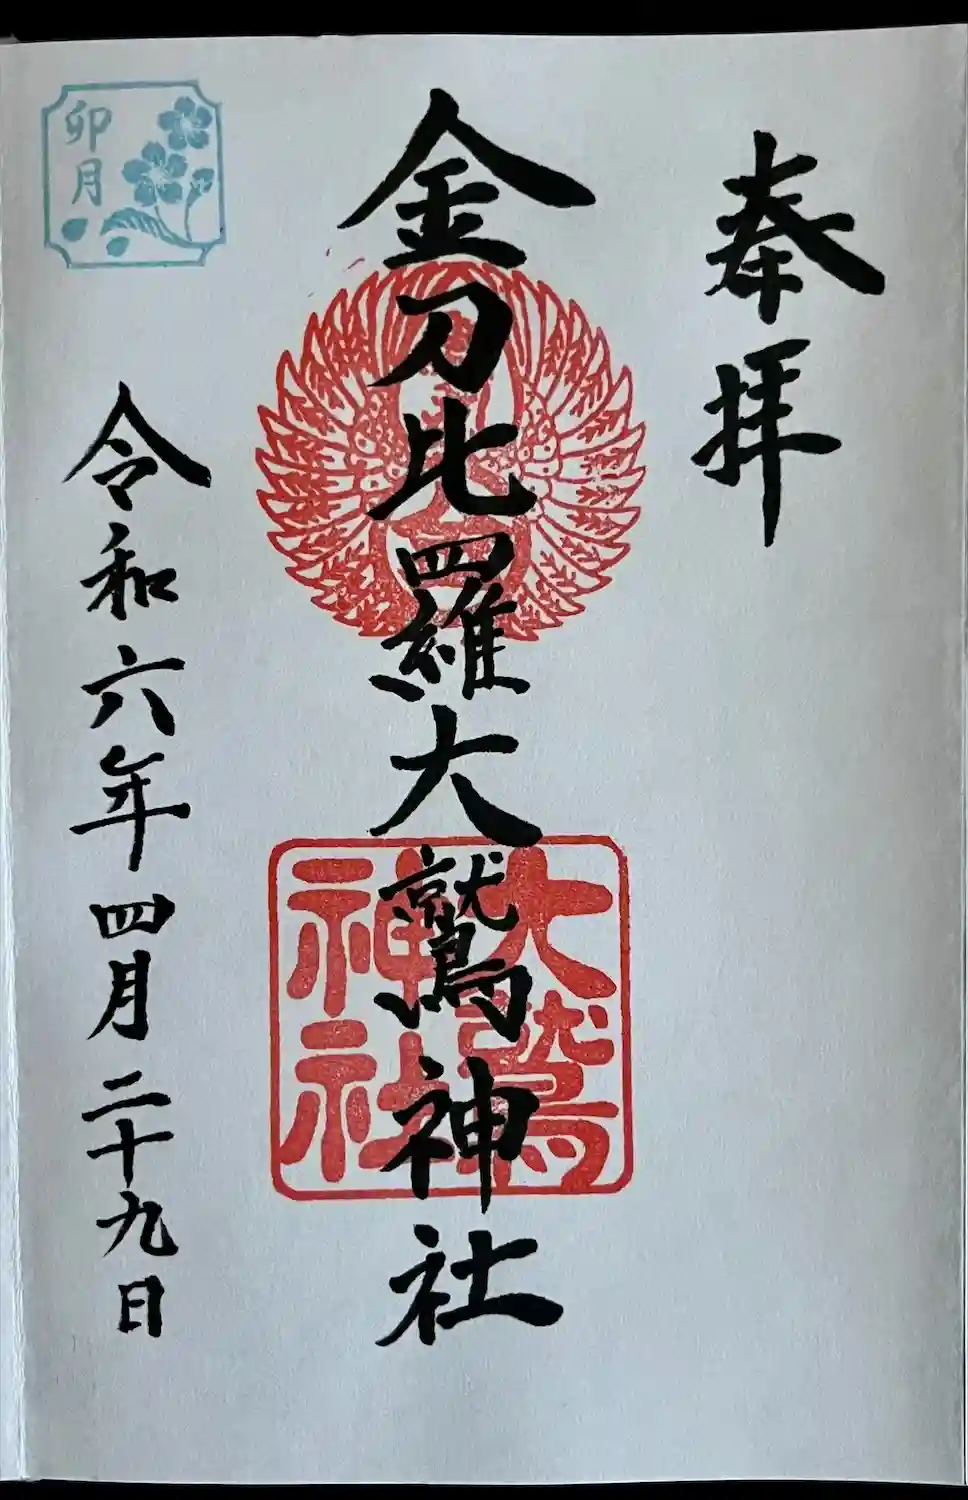 奉拝
金刀比羅大鷲神社
大鷲
神社
卯月
令和六年四月二十九日